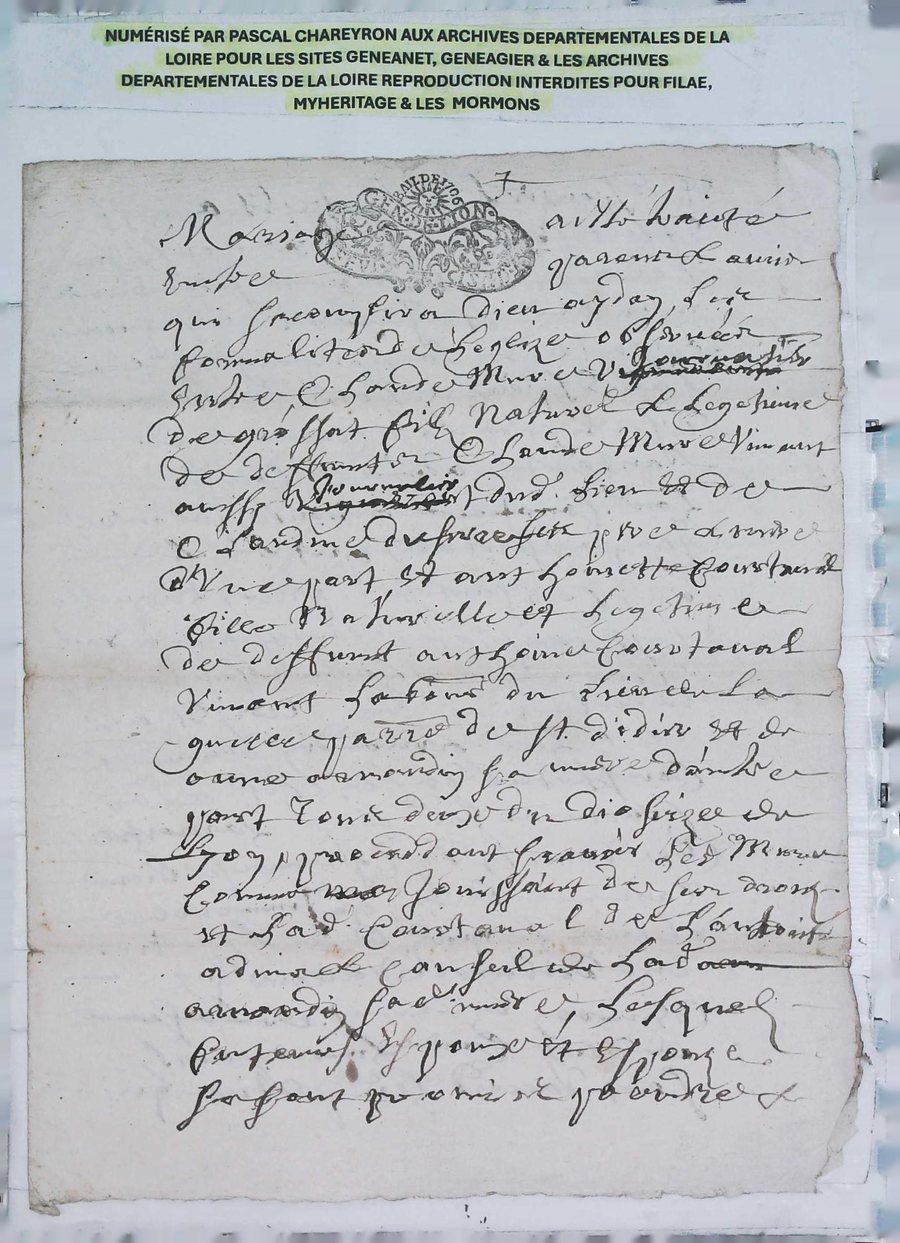 NUMÉRISÉ PAR PASCAL CHAREYRON AUX ARCHIVES DEPARTEMENTALES DE LA
LOIRE POUR LES SITES GENEANET, GENEAGIER & LES ARCHIVES
DEPARTEMENTALES DE LA LOIRE REPRODUCTION INTERDITES POUR FILAE,
MYHERITAGE & LES MORMONS
BAIL DE 1706
GEN·DE·LION
Mariage a esté traité
Entre parents & amis
qui sacomplira dieu aydan les
formalites de leglize observées
Entre Claude Mure journalier
de fils Naturel & legetime
de deffunt Claude Mure Vivant
aussy journalier dud. lieu et de
Claudine sa mere
d'Une part Et anthoinette Courtaval
fille Naturelle et legetime
de deffunt anthoine Courtaval
Vivant du lieu de la
parre de st didier et de
anne sa mere d'autre
part Tous deux du diosize de
Lyon proceddant scavoir led Mure
comme jouissant de ses droits
et lad. Courtaval de l'authorité
advis & conseil de lad
sad mere, Lesquels
futeurs Espoux et Espouze
se sont promis prendre &